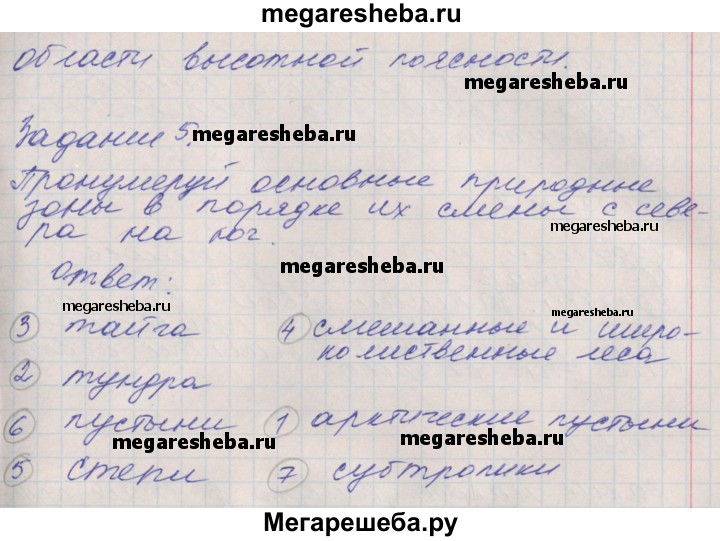 megaresheba.ru
области высотной поясности.
megaresheba.ru
Задании 5.
megaresheba.ru
Пронумеруй основные природные
зоны в порядке их смены с севе-
ра на юг.
megaresheba.ru
megaresheba.ru
Ответ:
megaresheba.ru
megaresheba.ru
3 тайга
4 смешанные и широ-
колиственные леса
megaresheba.ru
2 тундра
6 пустыни
1 арктические пустыни
megaresheba.ru
megaresheba.ru
5 степи
7 субтропики
Мегарешеба.ру